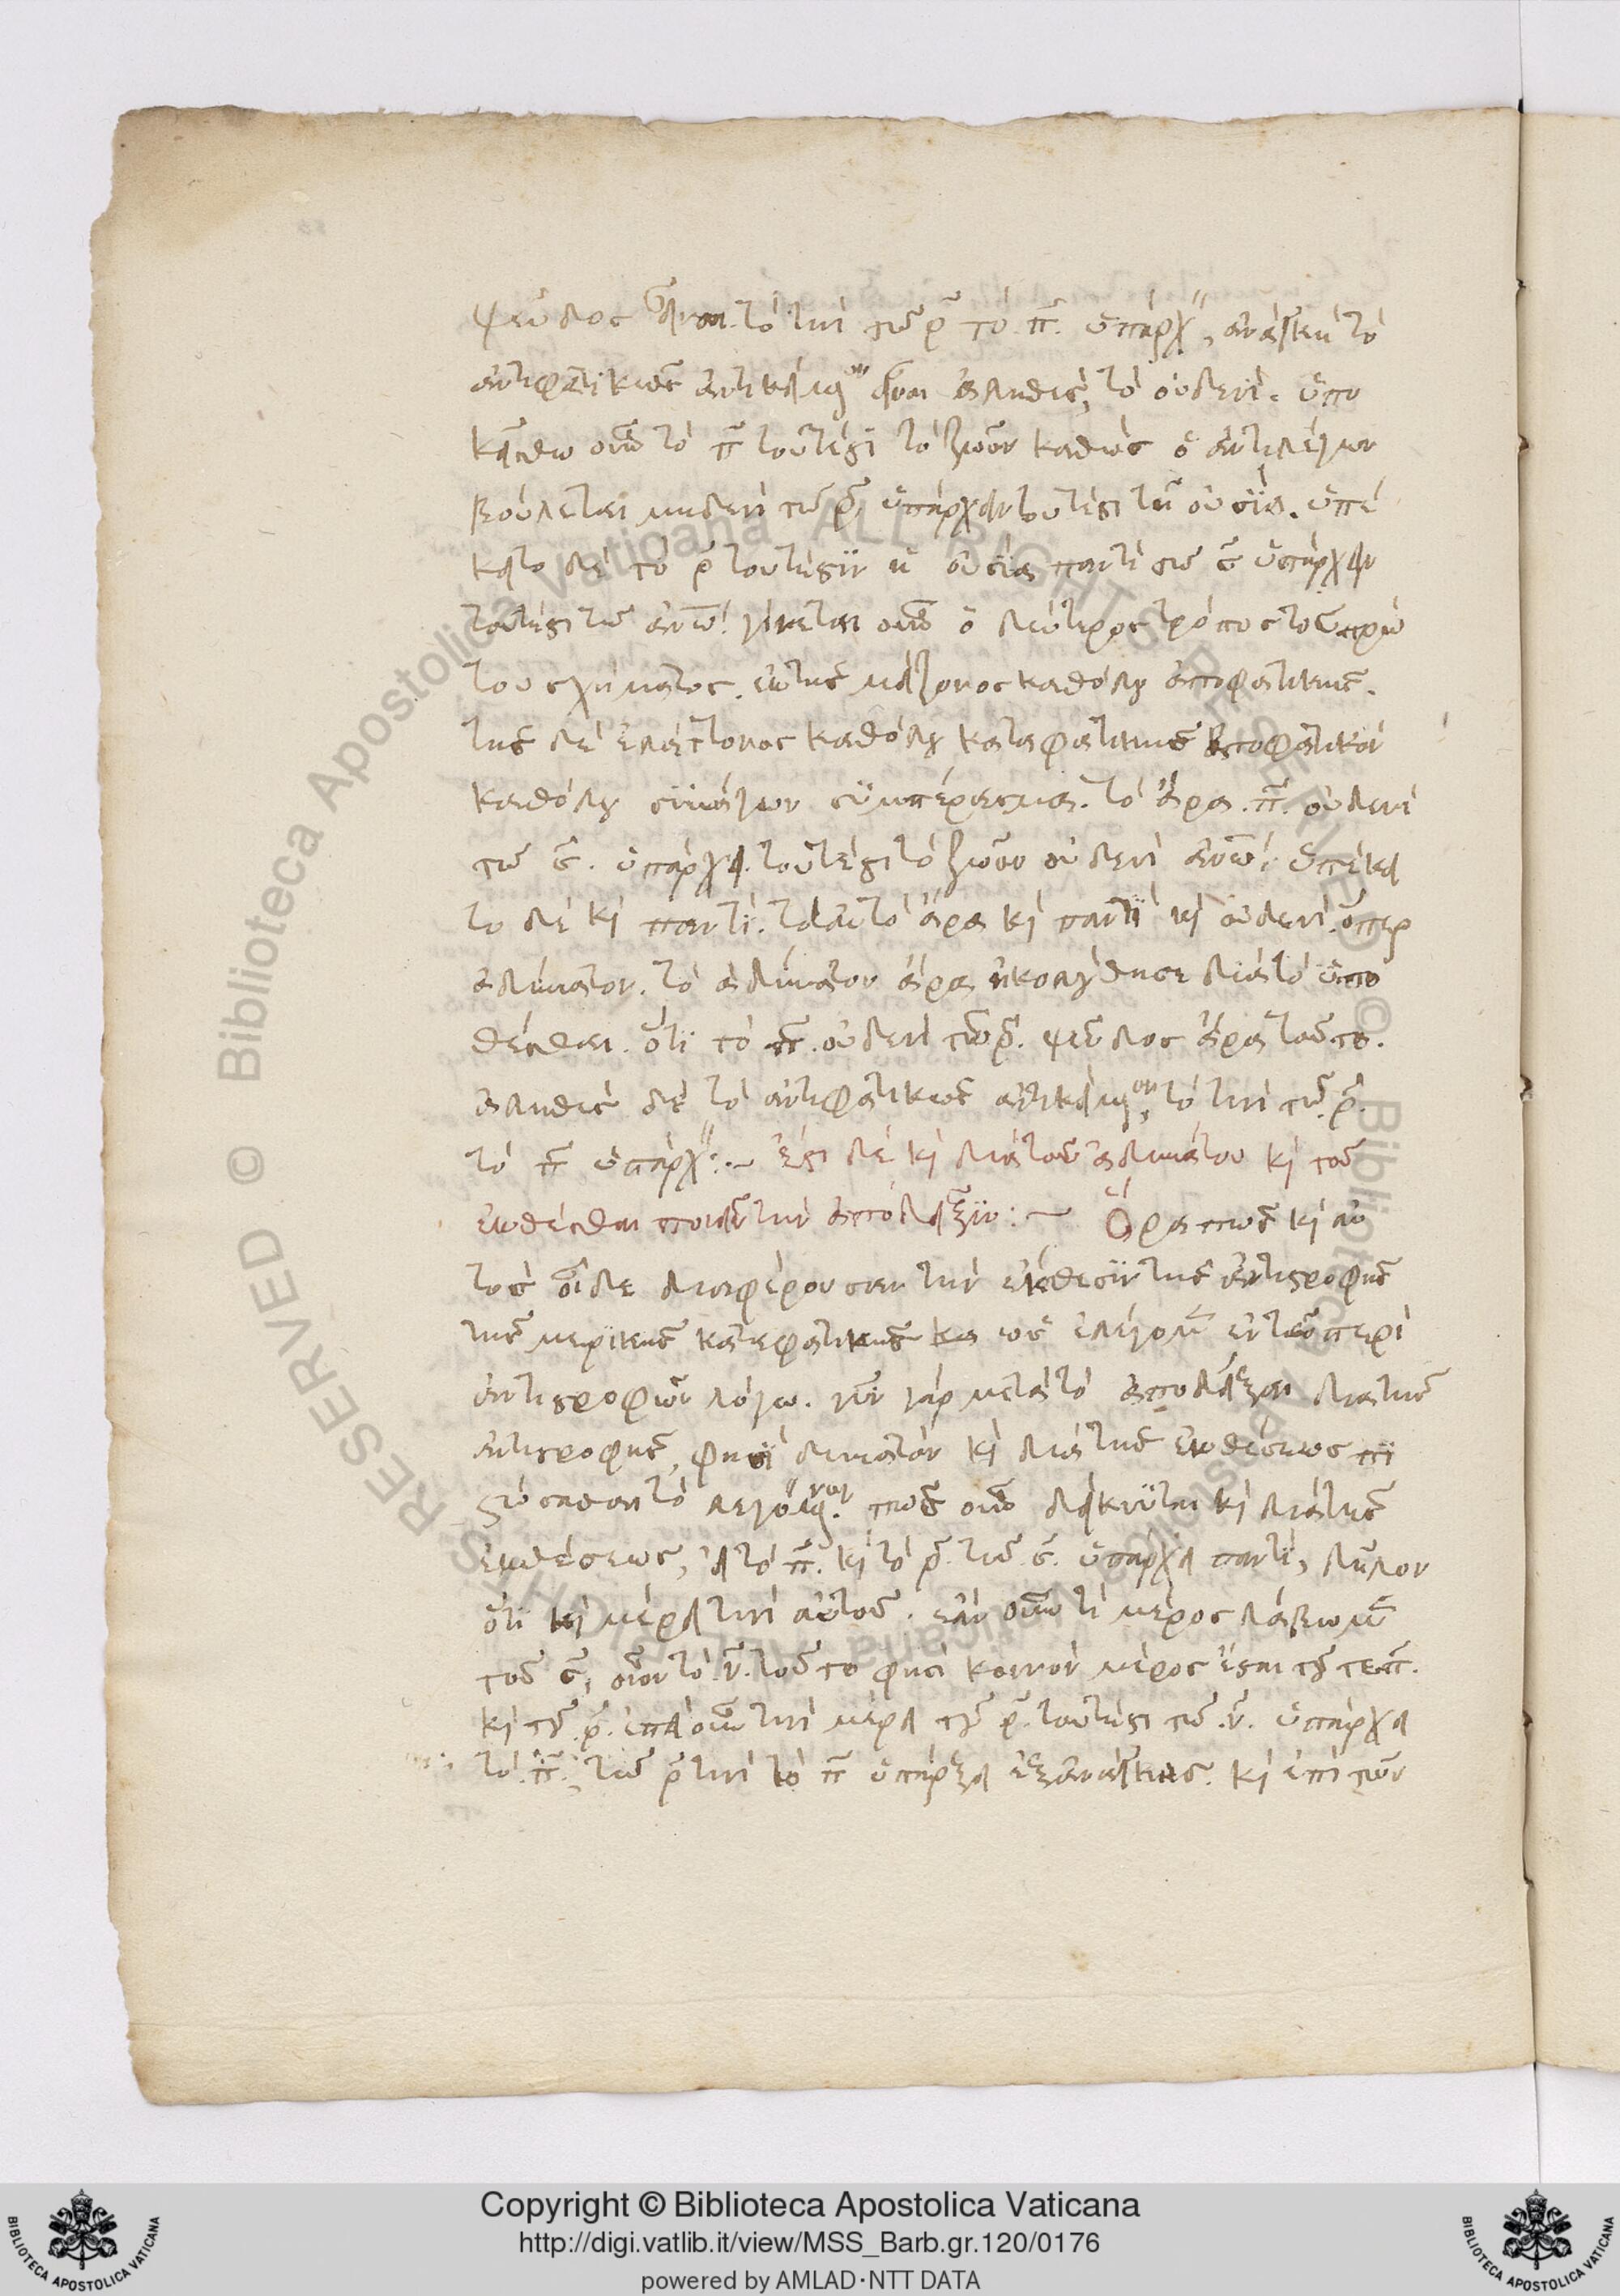 ψεῦδος εἶναι. τὸ τινὶ τῷ ρ̄ τὸ π̄. ὑπάρχειν, ἀνάγκη τὸ
ἀντιφατικῶς ἀντικείμενον εἶναι ἀληθὲς, τὸ οὐδενί. ὑπο
κείσθω οὖν τὸ π̄ τουτέστι τὸ ζῷον καθὼς ὁ ἀντιλέγων
βούλεται μηδενὶ τῷ ρ̄ ὑπάρχειν τουτέστι τῆ οὐσίᾳ. ὑπέ
κειτο δὲ τὸ ρ̄ τουτέστιν ἡ οὐσία παντὶ τῷ σ̄ ὑπάρχειν
τουτέστι τῷ ἀνῶ. γίνεται οὖν ὁ δεύτερος τρόπος τοῦ πρώ
του σχήματος. ἐκ τῆς μείζονος καθόλου ἀποφατικῆς.
τῆς δὲ ἐλάττονος καθόλου καταφατικῆς ἀποφατικὸν
καθόλου συνάγων συμπέρασμα. τὸ ἄρα .π̄. οὐδενὶ
τῷ σ̄. ὑπάρχει. τουτέστι τὸ ζῷον οὐδενὶ ἀνῶ. ὑπέκει
το δὲ κὶ παντί. τὸ αὐτὸ ἄρα κὶ παντὶ κὶ οὐδενὶ. ὅπερ
ἀδύνατον. τὸ ἀδύνατον ἄρα ἠκολούθησε διὰ τὸ ὑπο
θέσθαι. ὅτι τὸ π̄. οὐδενὶ τῷ ρ̄. ψεῦδος ἄρα τοῦτο.
ἀληθὲς δὲ τὸ ἀντιφατικῶς ἀντικείμενον, τὸ τινὶ τῷ. ρ̄.
τὸ π̄ ὑπάρχειν:~ ἔστι δὲ κὶ διὰ τοῦ ἀδυνάτου κὶ τοῦ
ἐκθέσθαι ποιεῖν τὴν ἀπόδειξιν:~ Ὅρα πῶς κὶ αὐ
τὸς οἶδε διαφέρουσαν τὴν ἔκθεσιν τῆς ἀντιστροφῆς
τῆς μερικῆς καταφατικῆς κα ὡς ἐλέγομεν ἐν τῷ περὶ
ἀντιστροφῶν λόγω. νῦν γὰρ μετὰ τὸ ἀποδεῖξαι διὰ τῆς
ἀντιστροφῆς, φησὶ δυνατὸν κὶ διὰ τῆς ἐκθέσεως πι
στώσασθαι τὸ λεγόμενον. πῶς οὖν δείκνυται κὶ διὰ τῆς
ἐκθέσεως, εἰ τὸ π̄. κὶ τὸ ρ̄. τῷ σ̄. ὑπάρχει παντὶ, δῆλον
ὅτι κὶ μέρει τινὶ αὐτοῦ. ἐὰν οὖν τὶ μέρος λάβωμεν
τοῦ σ̄, οἷον τὸ .ν̄. τοῦτο φησὶ κοινὸν μέρος ἔσται τοῦ τε π̄.
κὶ τοῦ .ρ̄. ἐπεὶ οὖν τινὶ μέρει τοῦ ρ̄. τουτέστι τῷ .ν̄. ὑπάρχει
τὸ .π̄., τῷ ρ̄ τινὶ τὸ π̄ ὑπάρξει ἐξ ἀνάγκης. κὶ ἐπὶ τῶν
Copyright © Biblioteca Apostolica Vaticana
http://digi.vatlib.it/view/MSS_Barb.gr.120/0176
powered by AMLAD·NTT DATA